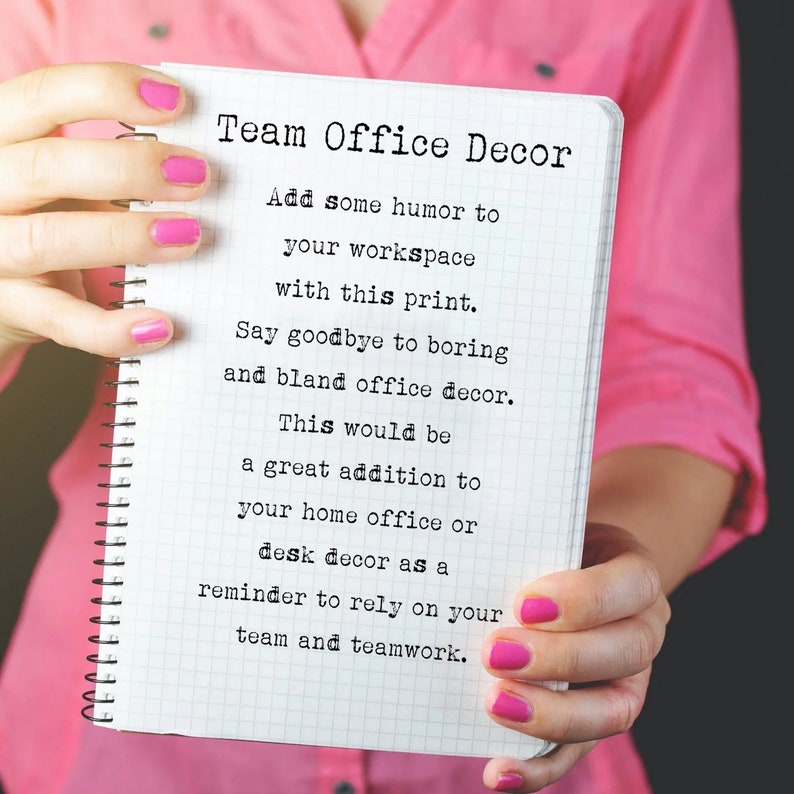 Team Office Decor
Add some humor to
your workspace
with this print.
Say goodbye to boring
and bland office decor.
This would be
a great addition to
your home office or
desk decor as a
reminder to rely on your
team and teamwork.